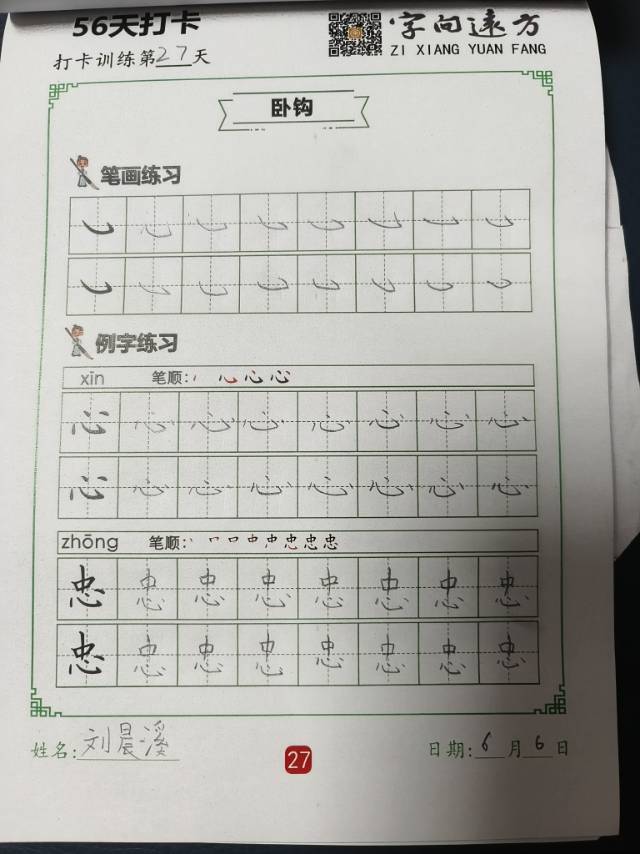 56天打卡
字向遠方
打卡训练第27天
ZI XIANG YUAN FANG
卧钩
笔画练习
例字练习
xīn 笔顺:
心 心 心 心 心 心 心 心
心 心 心 心 心 心 心 心
zhōng 笔顺:
忠 忠 忠 忠 忠 忠 忠 忠
忠 忠 忠 忠 忠 忠 忠 忠
姓名:刘晨溪
27
日期:6月6日